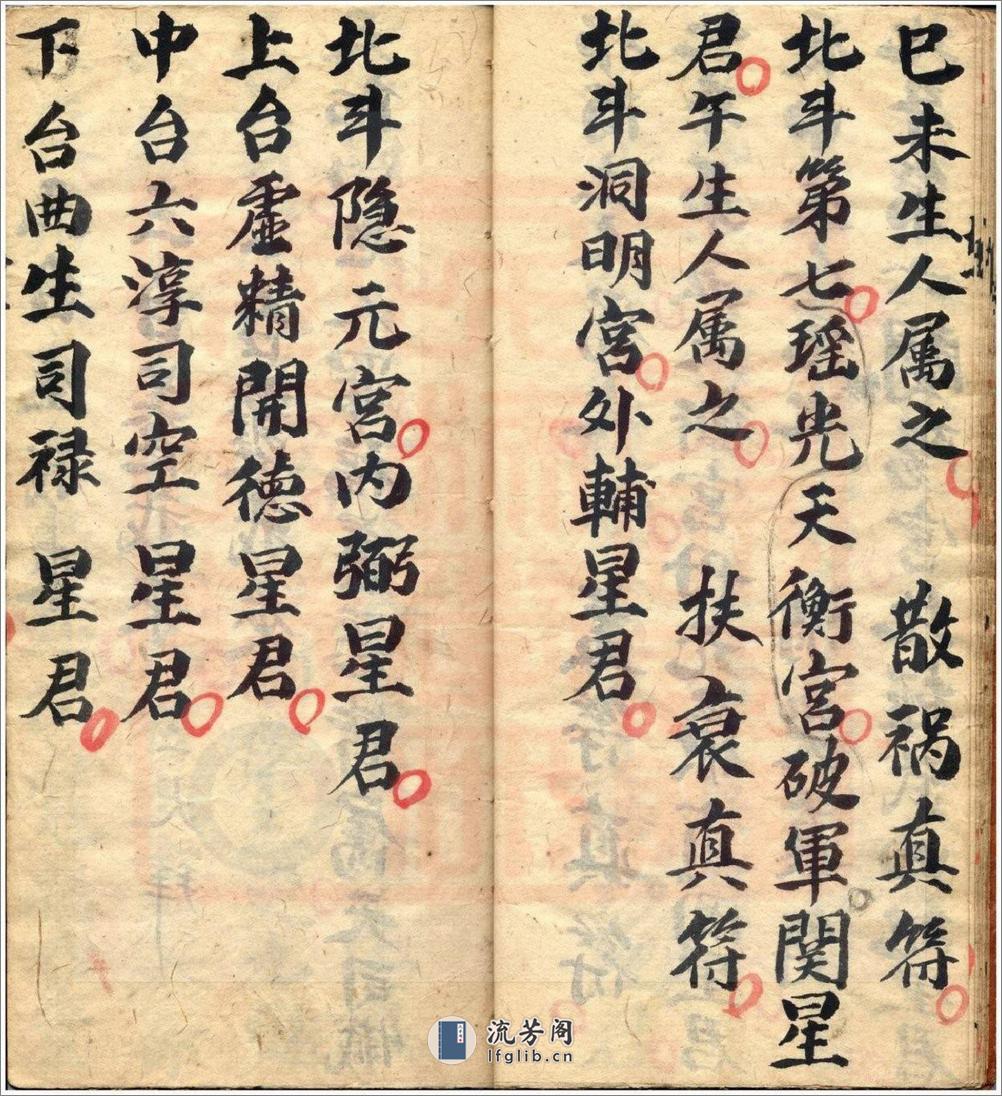 巳未生人属之　散祸真符
北斗第七瑶光天衡宫破軍関星
君午生人属之　扶衰真符
北斗洞明宫外輔星君
北斗隐元宫内弼星君
上台虚精開德星君
中台六淳司空星君
下台曲生司禄星君
流芳阁
lfglib.cn